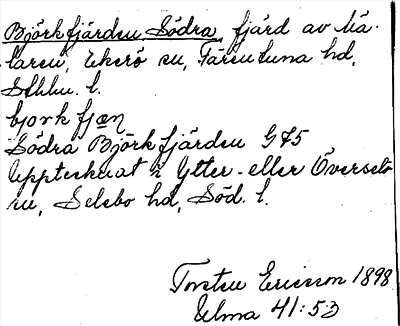 Björkfjärden, Södra, fjärd av Mä-
laren, Ekerö sn, Färentuna hd,
Sthlm. l.
bjorkfjæn
Södra Björkfjärden G45
Upptecknat i Ytter- eller Överselö
sn, Selebo hd, Söd. l.
Torsten Ericsson 1898
Ulma 41:53